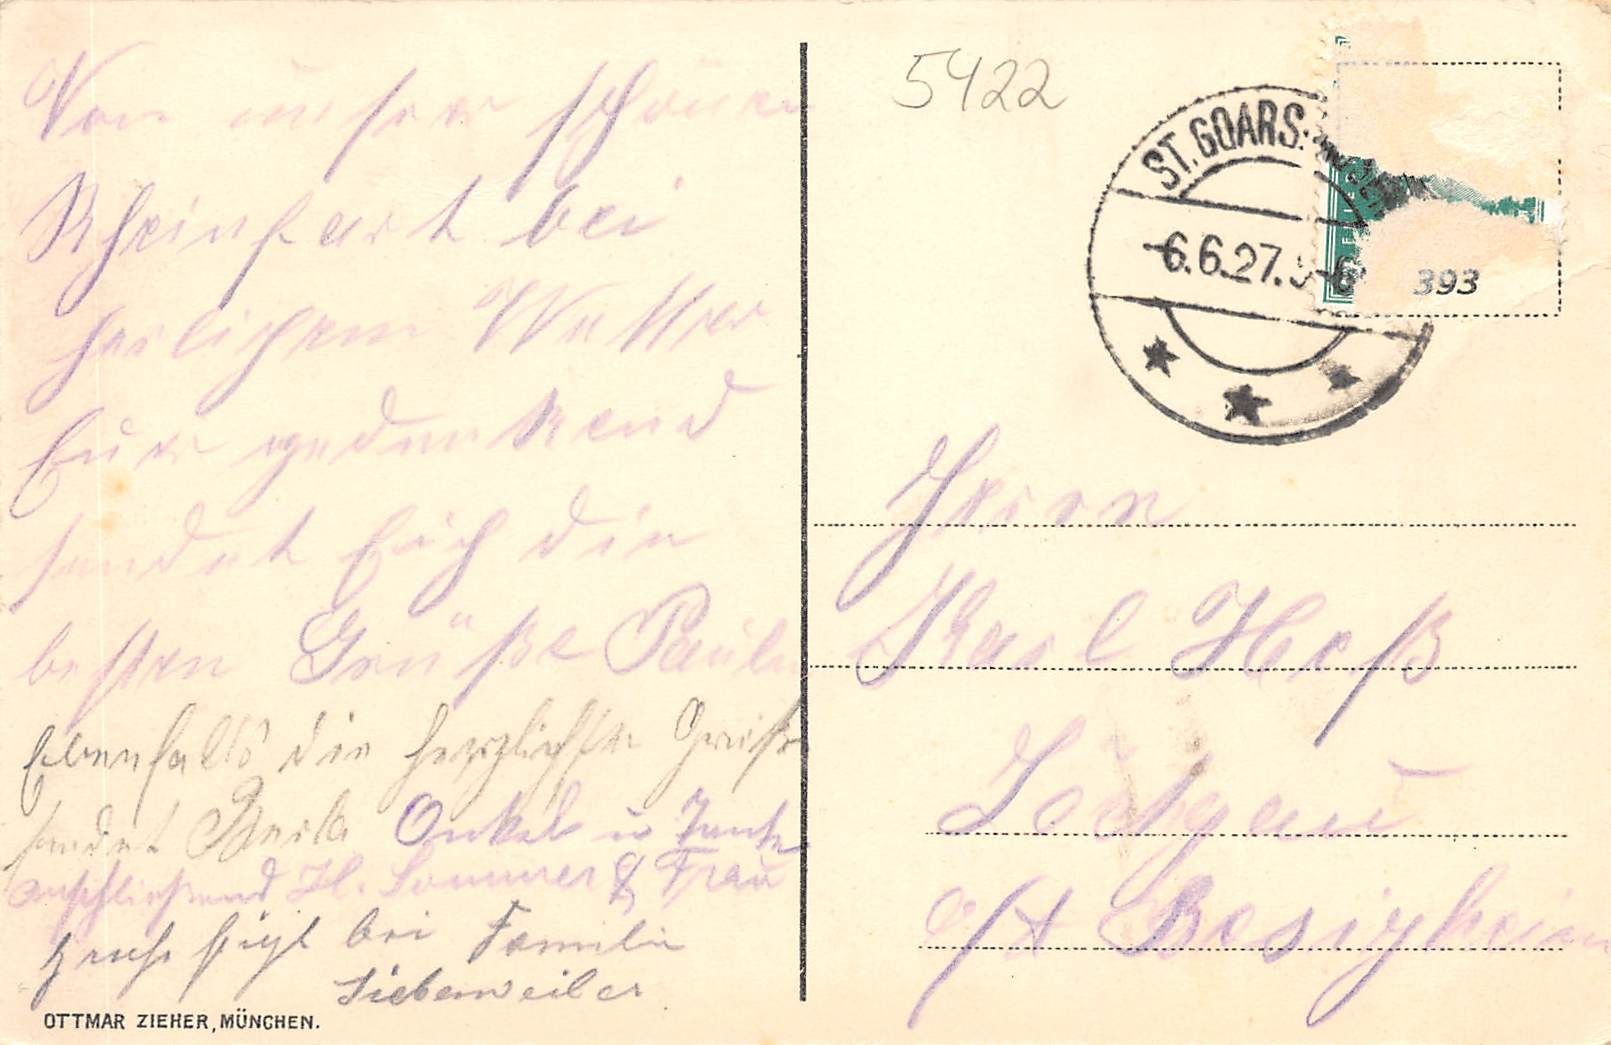 Von unser schönen
Rheinfart bei
herlichem Wetter
Eure gedenkend
sendet Euch die
besten Grüße Paula
Ebenfalls die herzlichste Grüße
sendet Onkel u Tante
anschließend H. Sommer & Frau
Gruß fügt bei Familie
Siebenweiler
OTTMAR ZIEHER, MÜNCHEN.
5422
ST. GOARS
6.6.27.
393
Herrn
Karl Heß
Löchgau
O/A Besigheim